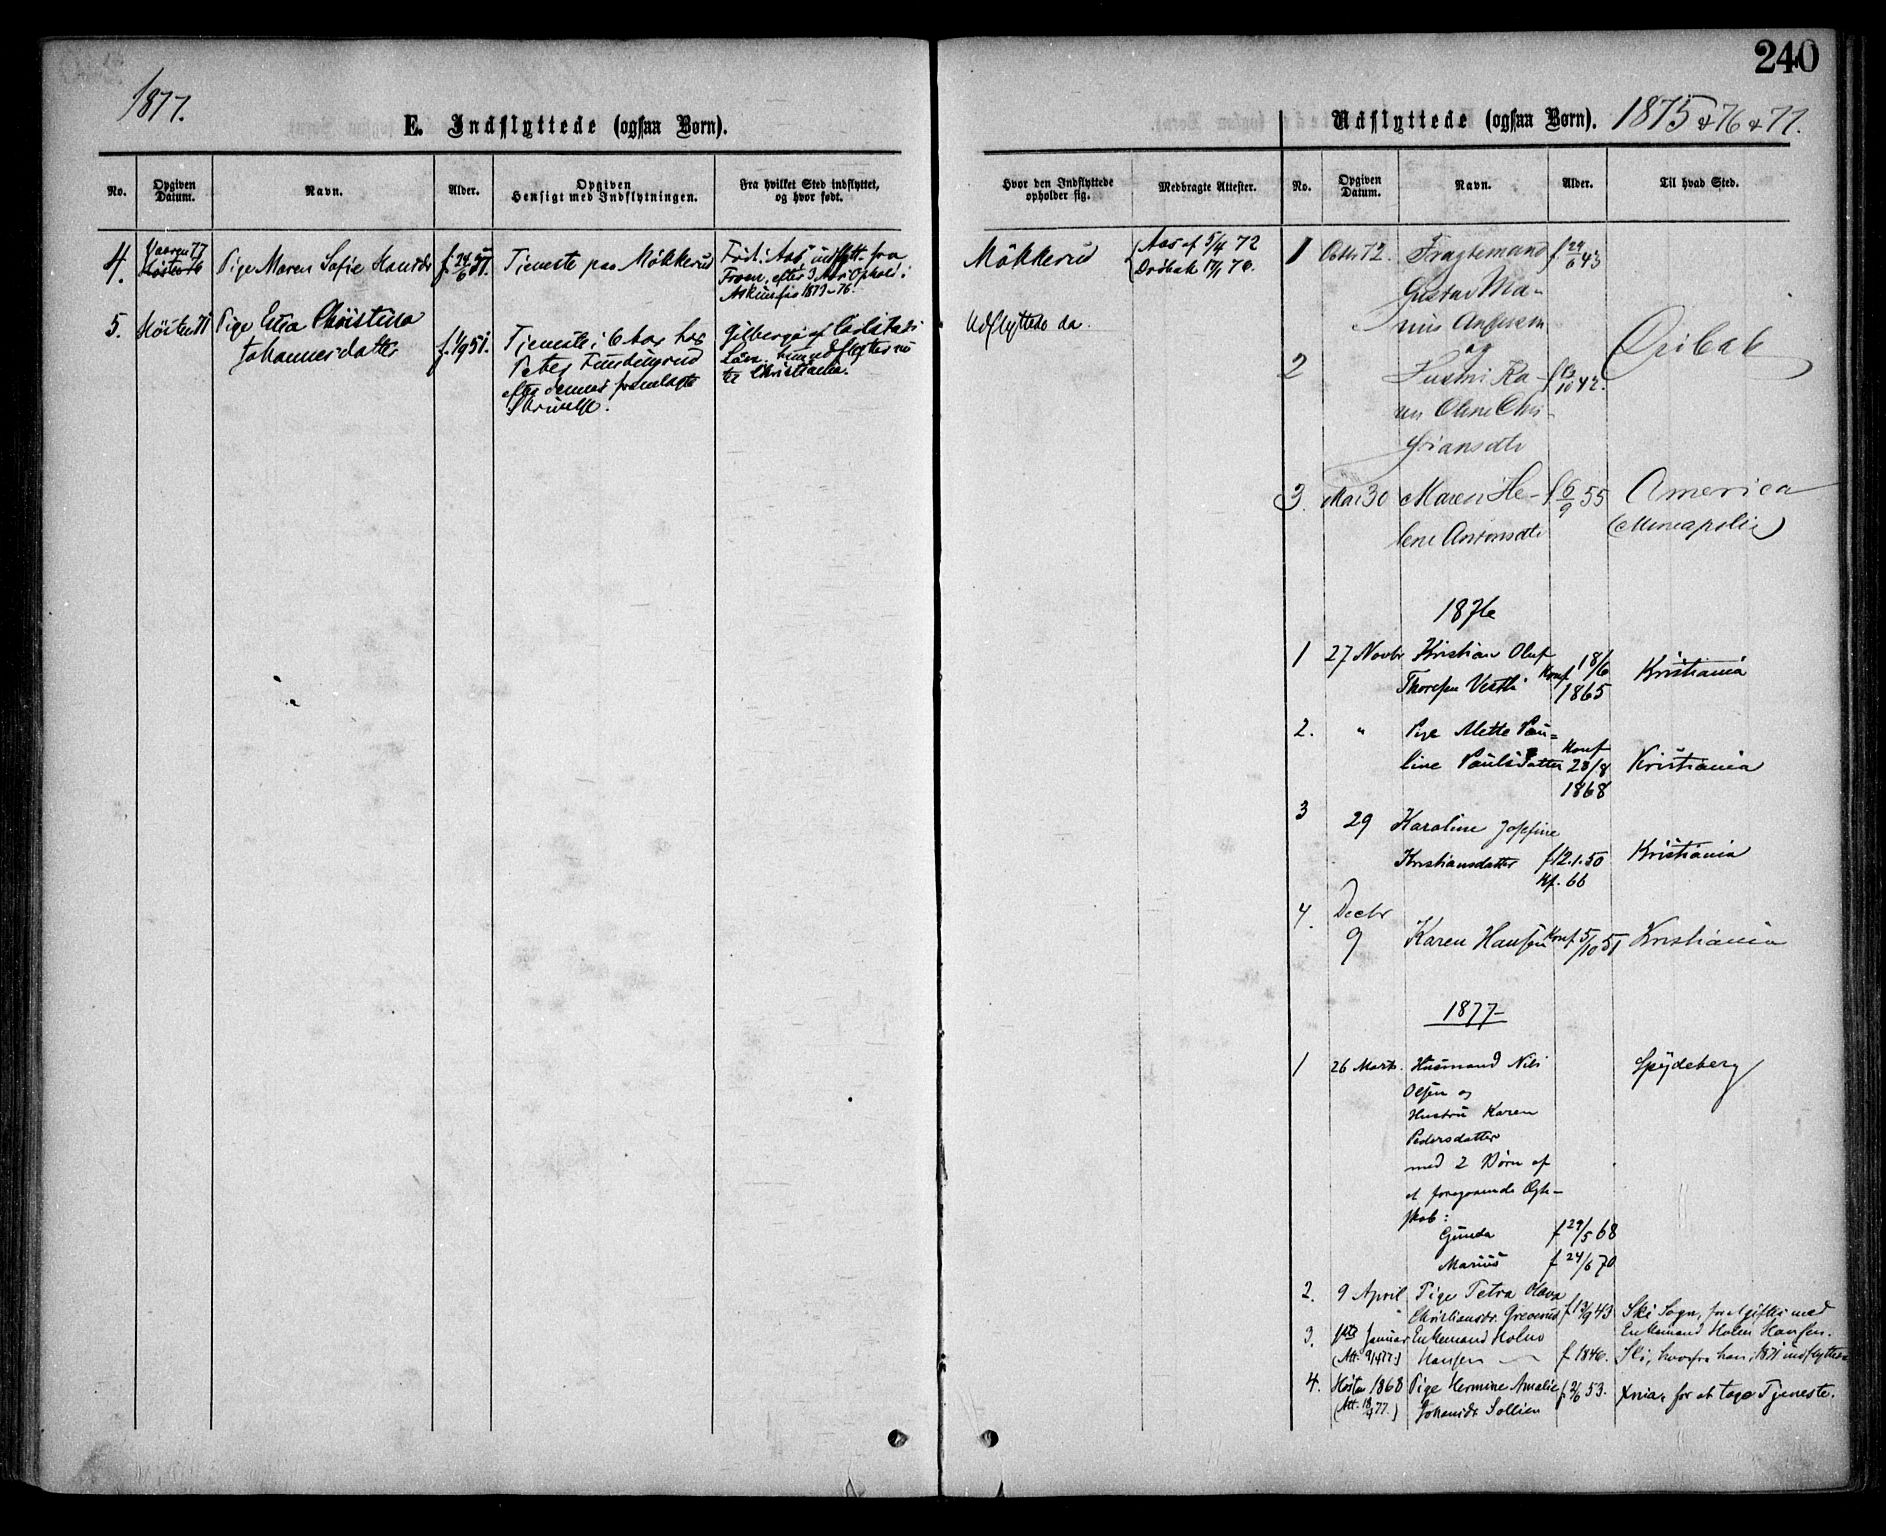 240
1877.
E. Indflyttede (ogsaa Børn).
No.
Opgiven Datum.
Navn.
Alder.
Opgiven Hensigt med Indflytningen.
Fra hvilket Sted indflyttet, og hvor født.
Hvor den Indflyttede opholder sig.
Medbragte Attester.
4.
Vaaren 77
Pige Maren Sofie Hansdr
f. 24/6 51.
Tjeneste paa Møkkerud
Født i Aas, indflytt. fra
Froen, efter 3 Aars Ophold i
1873-76.
Møkkerud
Aas af 5/4 72
Drøbak 17/1 76.
5.
Høsten 71
Pige Christina
Johannesdatter
f. 1/9 51.
Tjeneste i 6 hos
Peter
efter dennes fremlagte
Skrivelse.
Gilberga af Carlstads
Län. hun udflytter nu
til Christiania.
Udflyttede da.
Udflyttede (ogsaa Børn).
1875 & 76 & 77.
No.
Opgiven Datum.
Navn.
Alder.
Til hvad Sted.
1
Octbr 72.
Fragtemand
f 29/6 43
Gustav Ma-
rius Andersen
og
2
Hustru Ka-
f 13/10 42.
Drøbak
ren Oline Chri-
stiansdtr
3.
Mai 30
Maren He-
f 6/9 55
America
lene Antonsdtr
(Mineapolis)
1876
1
27 Novbr
Kristian Oluf
Thoresen Vestli
Konf 18/6
1865
Kristiania
2.
"
Pige Mette Pau-
line Paulsdatter
Konf
28/8
1868
Kristiania
3
29
Karoline Josefine
Kristiansdatter
f 12.1.50
Kf. 66
Kristiania
4.
Decbr
9
Karen Hansen
Konf 5/10 51
Kristiania
1877
1
26 Marts.
Husmand Nils
Olsen og
Hustru Karen
Pedersdatter
med 2 Børn af
et foregaaende Ægte-
skab:
Gunda
f 29/5 68
Marius
f 24/6 70
Spydeberg
2.
9 April
Pige Petra Olava
Christiansdr. Greverud
f 13/9 43
Ski Sogn, for at giftes med
Enkemand Holm Hansen.
3.
Januar
(Att. 9/4 77.)
Enkemand Holm
Hansen
f. 1846.
Ski, hvorfra han i 1871 indflyttede
4.
Høsten 1868
(Att. 77.)
Pige Hermine Amalie
Johansdr Sollien
f 2/6 53.
Xnia, for at tage Tjeneste.